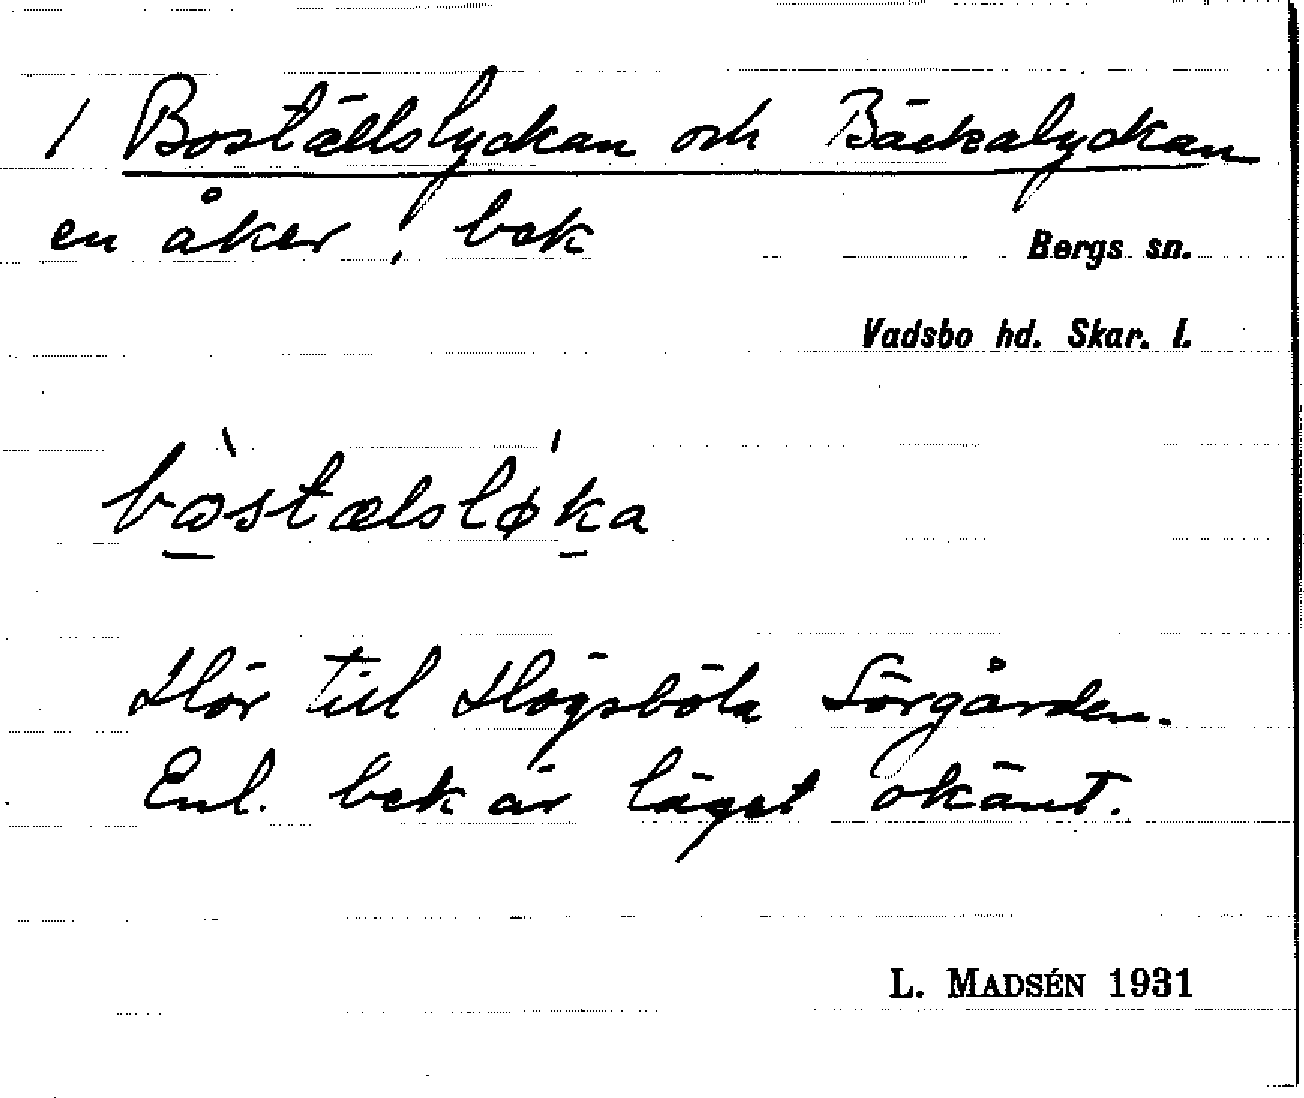 1 Boställslyckan och Bäckalyckan
en åker, bek
Bergs sn.
Vadsbo hd. Skar. l.
bòstælsløka
Hör till Högsböla Sörgården.
Enl. bek är läget okänt.
L. MADSÉN 1931